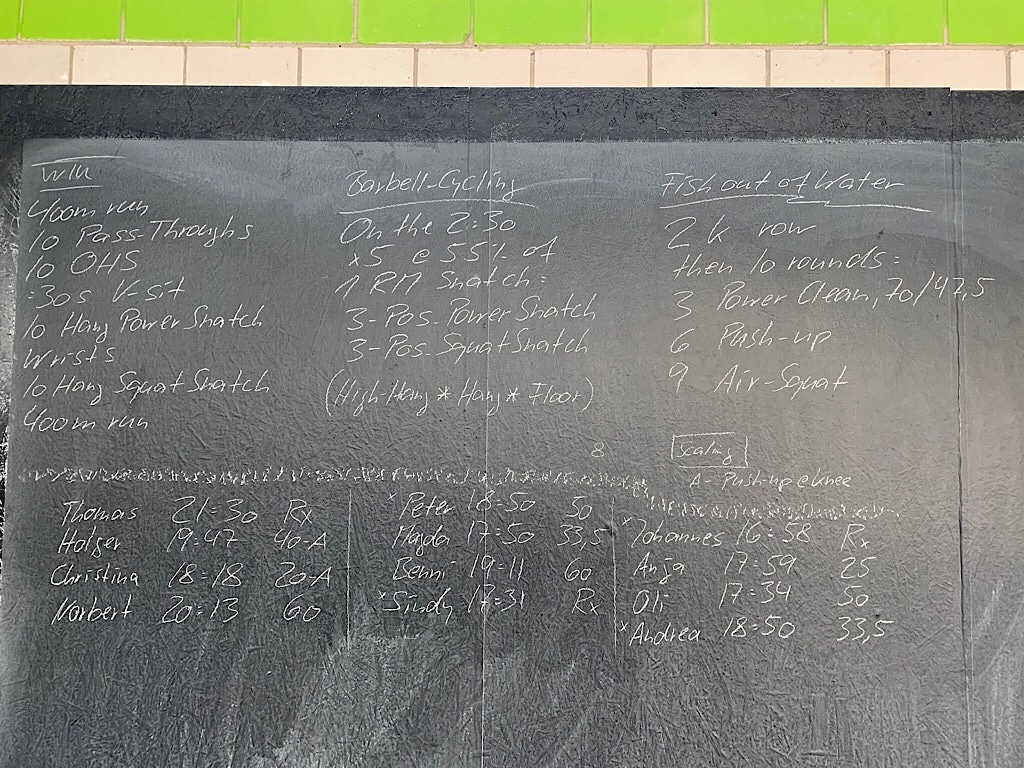 WU
400m run
10 Pass-Throughs
10 OHS
:30s V-sit
10 Hang Power Snatch
Wrists
10 Hang Squat Snatch
400m run
Barbell-Cycling
On the 2:30
x5 @ 55% of
1 RM Snatch:
3-Pos. Power Snatch
3-Pos. Squat Snatch
(High-Hang * Hang * Floor)
8
Fish out of Water
2 k row
then 10 rounds:
3 Power Clean, 70/47,5
6 Push-up
9 Air-Squat
Scaling
A- Push-up @ knee
Thomas 21:30 Rx
Holger 19:47 40-A
Christina 18:18 20-A
Norbert 20:13 60
x Peter 18:50 50
Magda 17:50 33,5
Benni 19:11 60
x Sindy 17:31 Rx
x Johannes 16:58 Rx
Anja 17:59 25
Oli 17:34 50
x Andrea 18:50 33,5